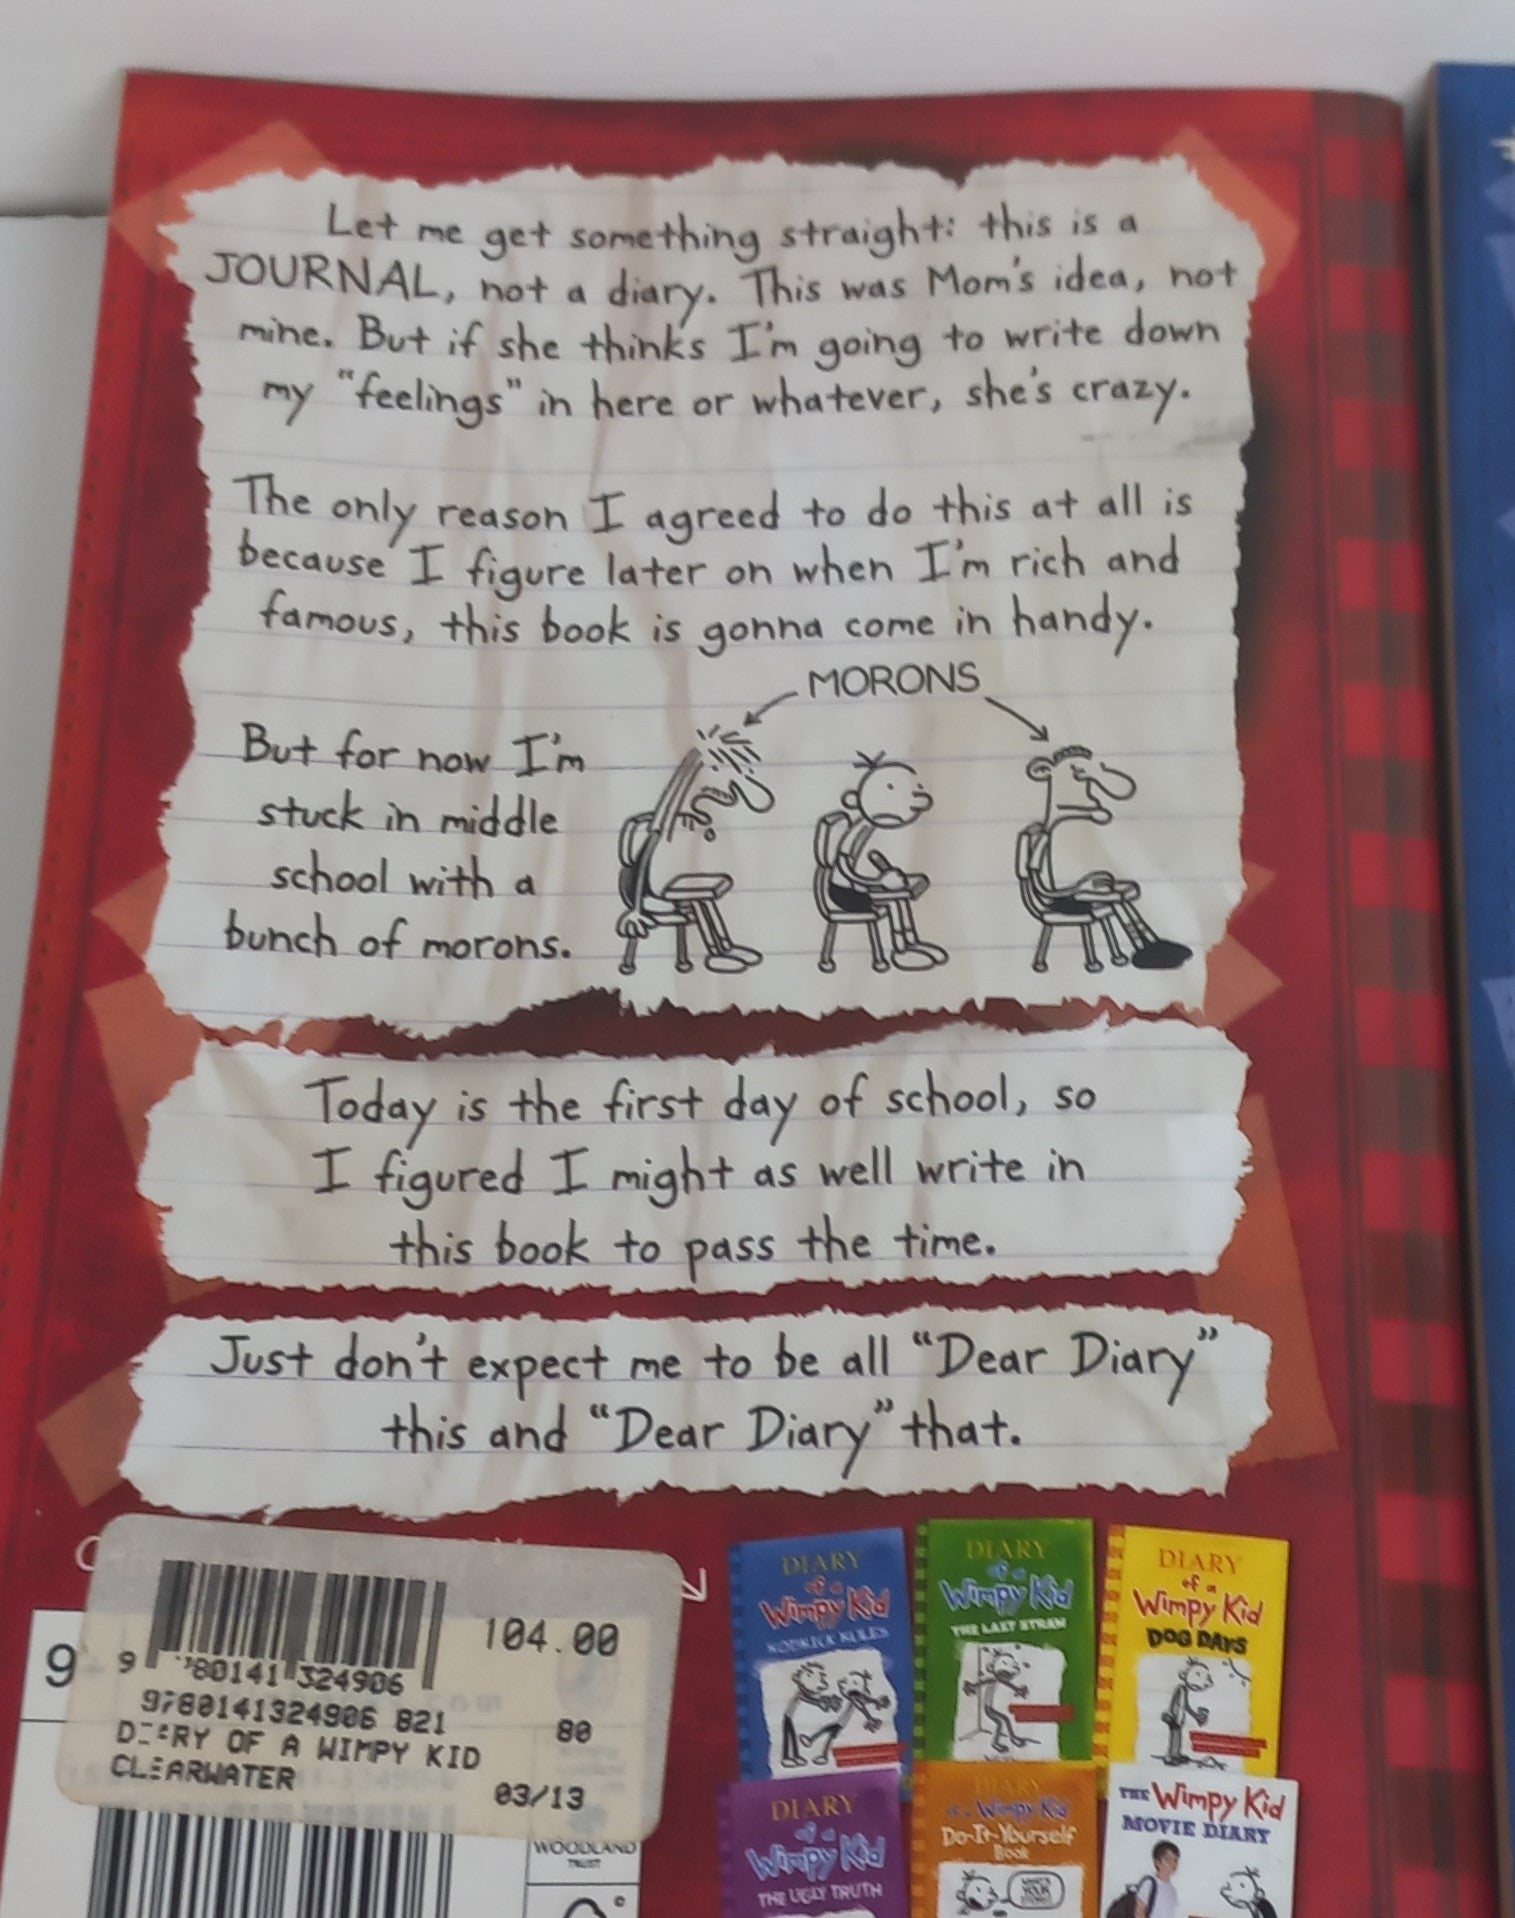 Let me get something straight: this is a
JOURNAL, not a diary. This was Mom's idea, not
mine. But if she thinks I'm going to write down
my "feelings" in here or whatever, she's crazy.
The only reason I agreed to do this at all is
because I figure later on when I'm rich and
famous, this book is gonna come in handy.
MORONS
But for now I'm
stuck in middle
school with a
bunch of morons.
Today is the first day of school, so
I figured I might as well write in
this book to pass the time.
Just don't expect me to be all "Dear Diary"
this and "Dear Diary" that.
104.00
9 780141 324906
9780141324906 821
80
DIARY OF A WIMPY KID
CLEARWATER
03/13
9
WOODLAND
TRUST
DIARY
of a
Wimpy Kid
RODRICK RULES
DIARY
of a
Wimpy Kid
THE LAST STRAW
DIARY
of a
Wimpy Kid
DOG DAYS
DIARY
of a
Wimpy Kid
THE UGLY TRUTH
DIARY
Wimpy Kid
Do-It-Yourself
Book
THE Wimpy Kid
MOVIE DIARY